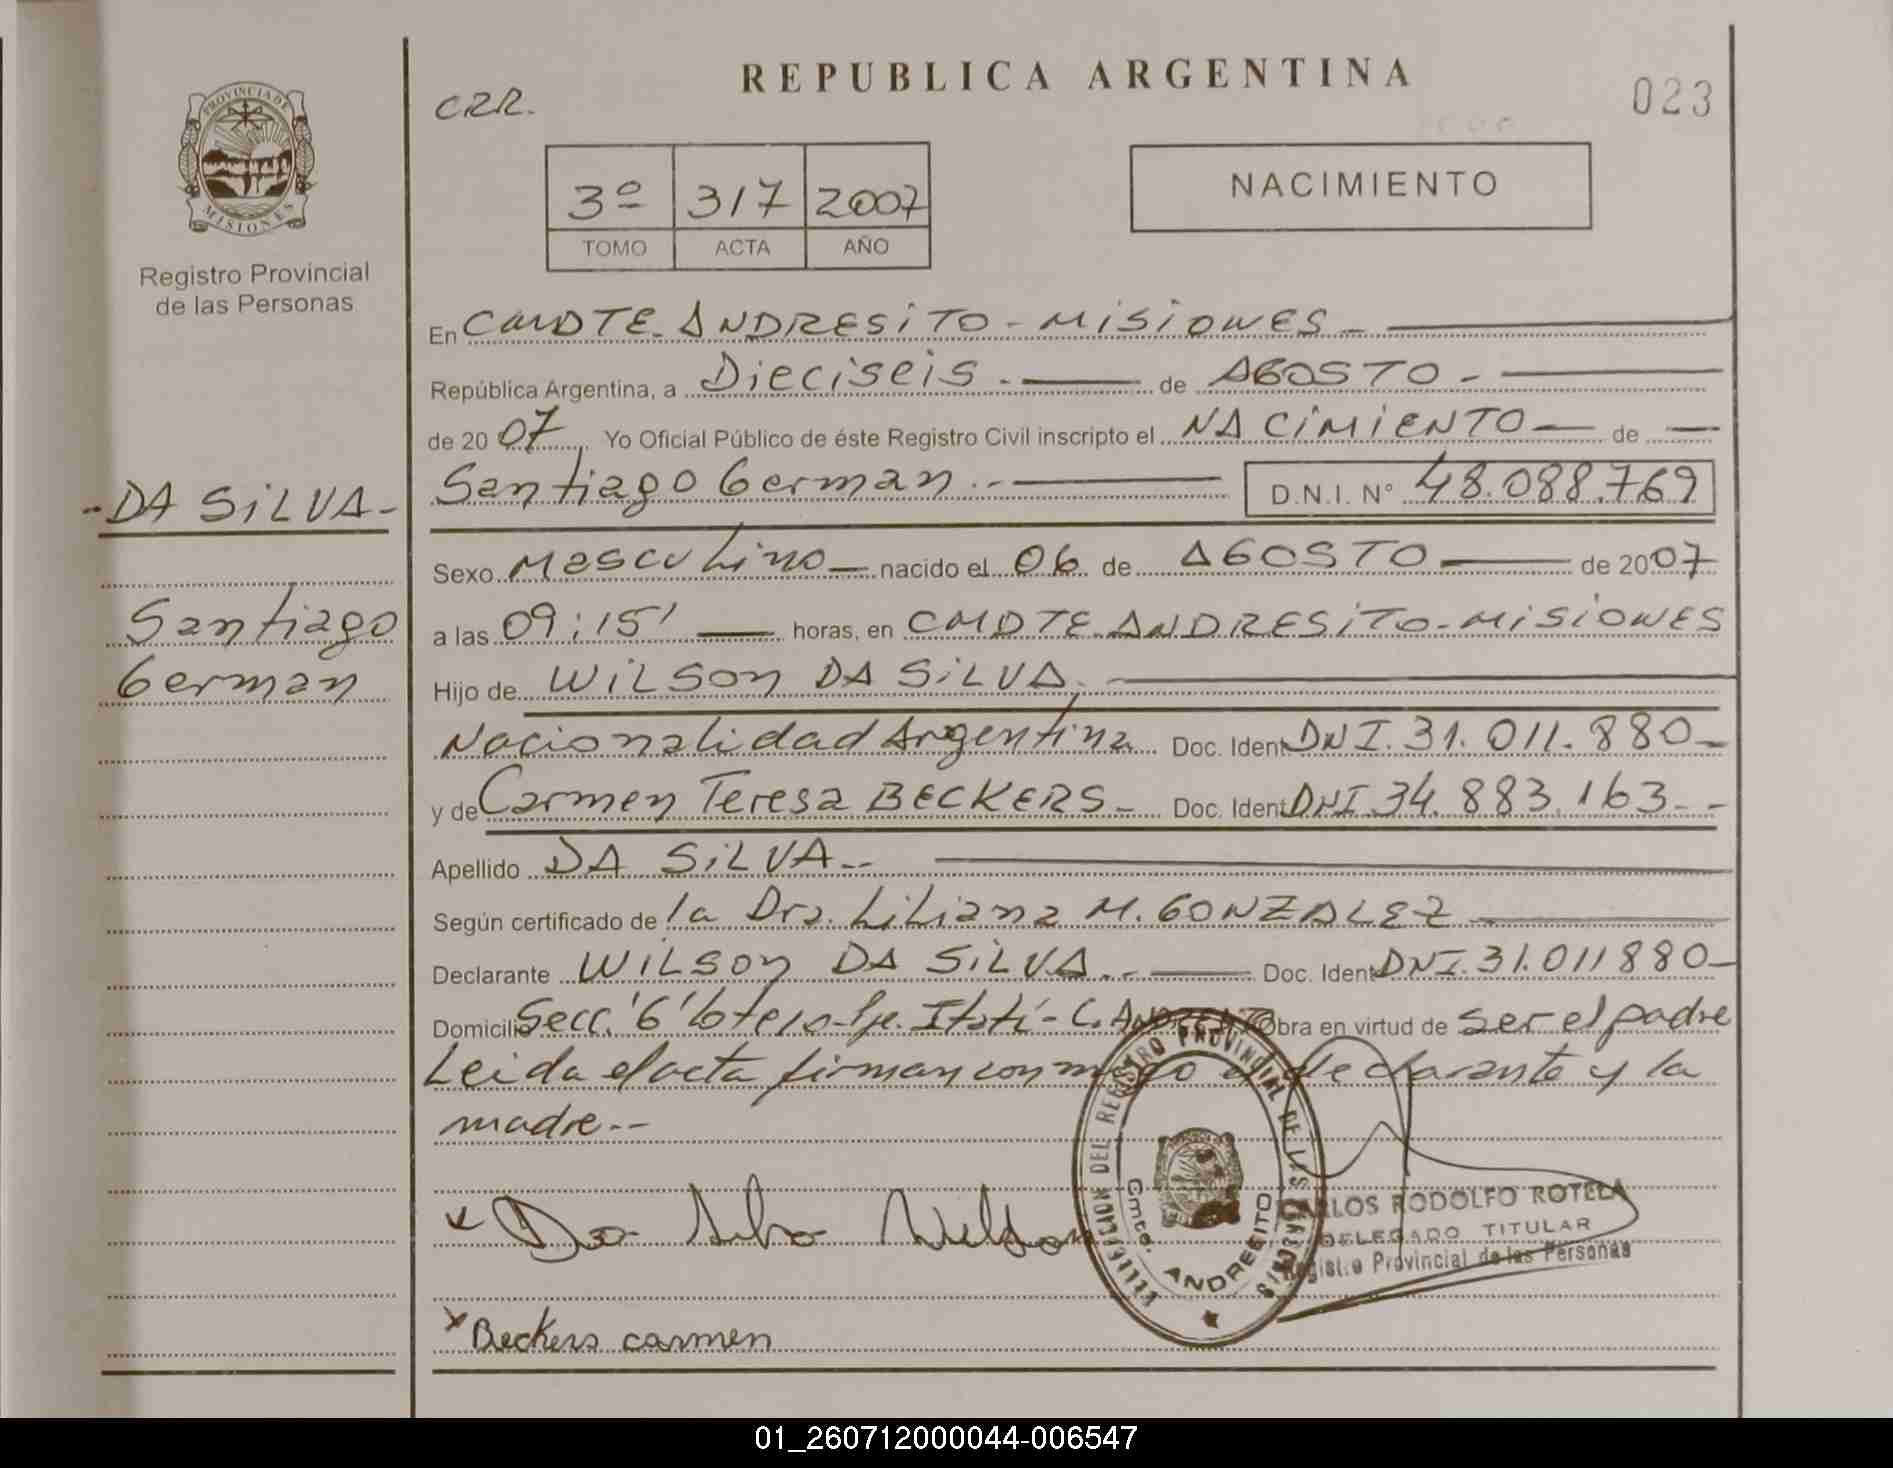 PROVINCIA DE
MISIONES
Registro Provincial
de las Personas
-DA SILVA-
Santiago
German
REPUBLICA ARGENTINA
CRR.
023
3º 317 2007
TOMO ACTA AÑO
NACIMIENTO
En CMDTE. ANDRESITO - MISIONES -
República Argentina, a Dieciseis - de AGOSTO -
de 20 07 Yo Oficial Público de éste Registro Civil inscripto el NACIMIENTO — de —
Santiago German - D.N.I. N° 48.088.769
Sexo Masculino - nacido el 06 de AGOSTO — de 2007
a las 09:15' — horas, en CMDTE. ANDRESITO - MISIONES
Hijo de WILSON DA SILVA.
Nacionalidad Argentina Doc. Ident DNI. 31.011.880-
y de Carmen Teresa BECKERS - Doc. Ident DNI 34.883.163--
Apellido DA SILVA--
Según certificado de la Dra. Liliana M. GONZALEZ
Declarante WILSON DA SILVA.- Doc. Ident DNI. 31.011880-
Domicilio Secc. '6' lotero - Pje. Itatí - C. Obra en virtud de ser el padre
Leida el acta firman conmigo el declarante y la
madre--
x Da Silva Wilson
x Beckers carmen
DELEGACION DEL REGISTRO PROVINCIAL DE LAS PERSONAS
Cmte. ANDRESITO
MISIONES
CARLOS RODOLFO ROTELA
DELEGADO TITULAR
Registro Provincial de las Personas
01_260712000044-006547